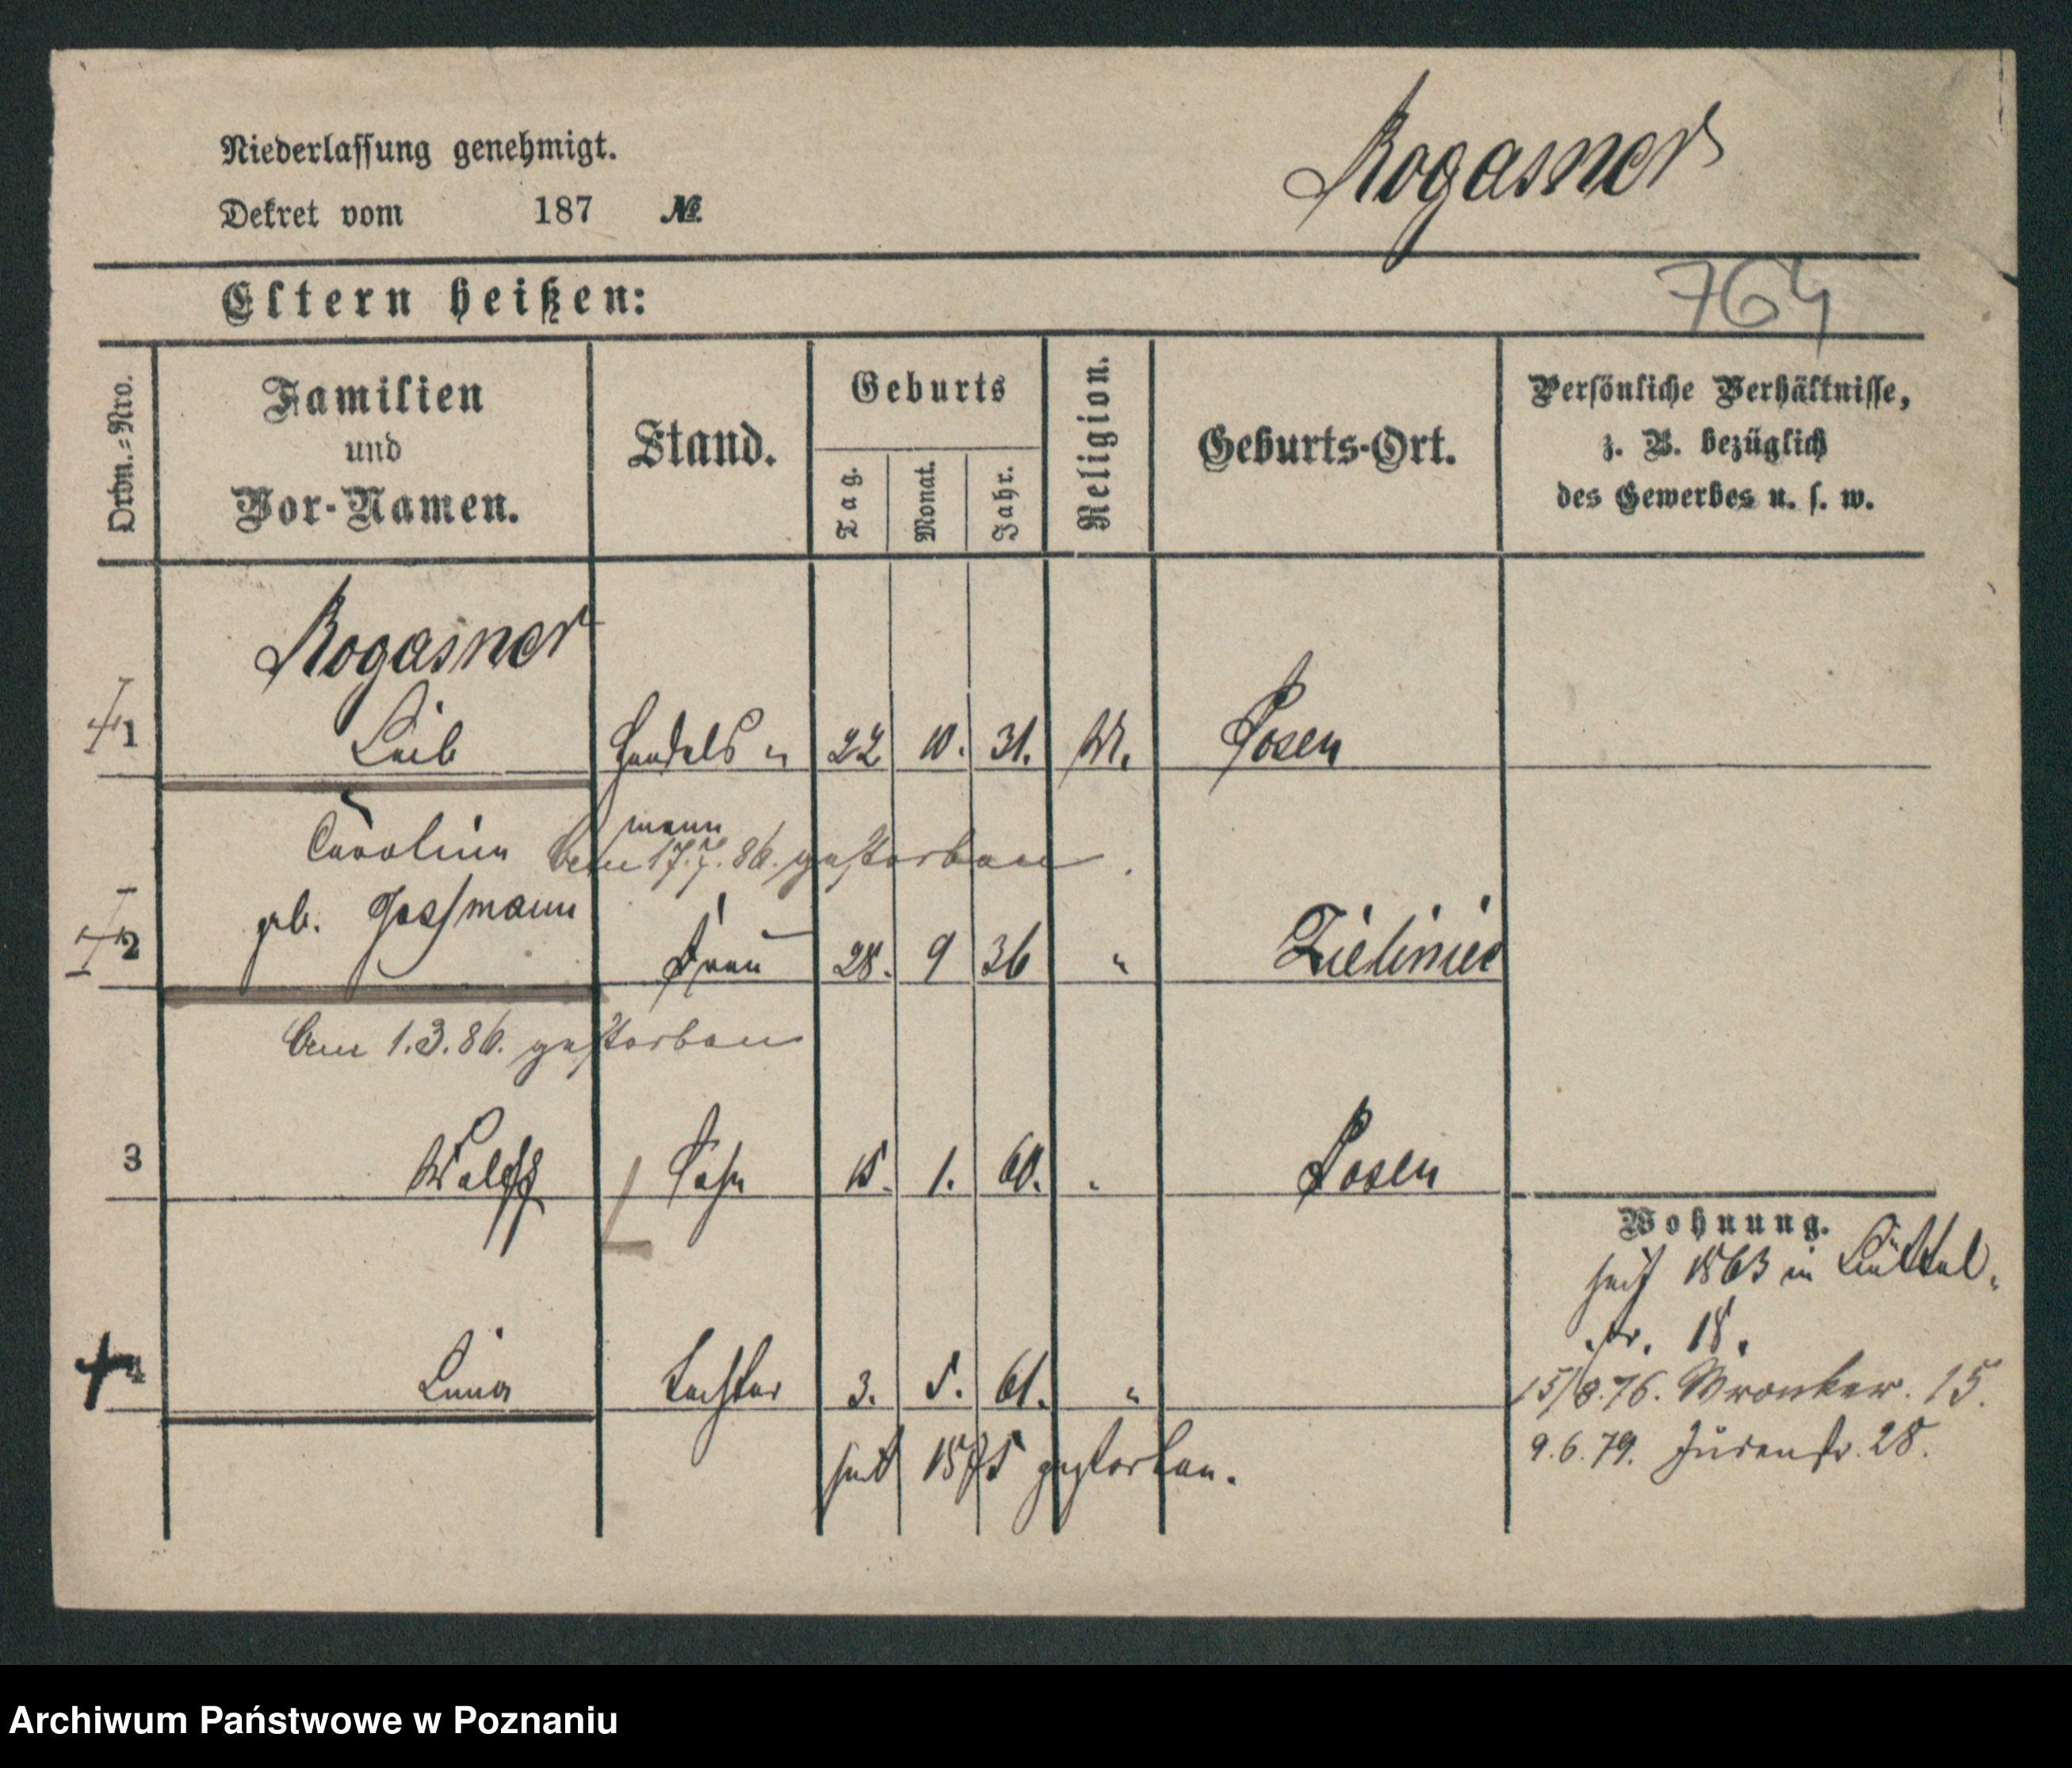 Niederlassung genehmigt.
Rogasner
Dekret vom 187 №.
Eltern heißen:
764
Ordn.-Nro.
Familien
und
Vor-Namen.
Stand.
Geburts
Tag.
Monat.
Jahr.
Religion.
Geburts-Ort.
Persönliche Verhältnisse,
z. B. bezüglich
des Gewerbes u. s. w.
Rogasner
1 Leib Handels 22 10. 31. M. Posen
mann
Caroline
den 17.7.86. gestorben.
geb.
2 Frau 28. 9 36 "
den 1.3.86. gestorben
3 Wolff Sohn 15. 1. 60. " Posen
Wohnung.
seit 1863 in
str. 18.
4 Tochter 3. 5. 61. "
15/8.76. Wronker. 15.
seit 1875 gestorben.
9.6.79. Judenstr. 28.
Archiwum Państwowe w Poznaniu